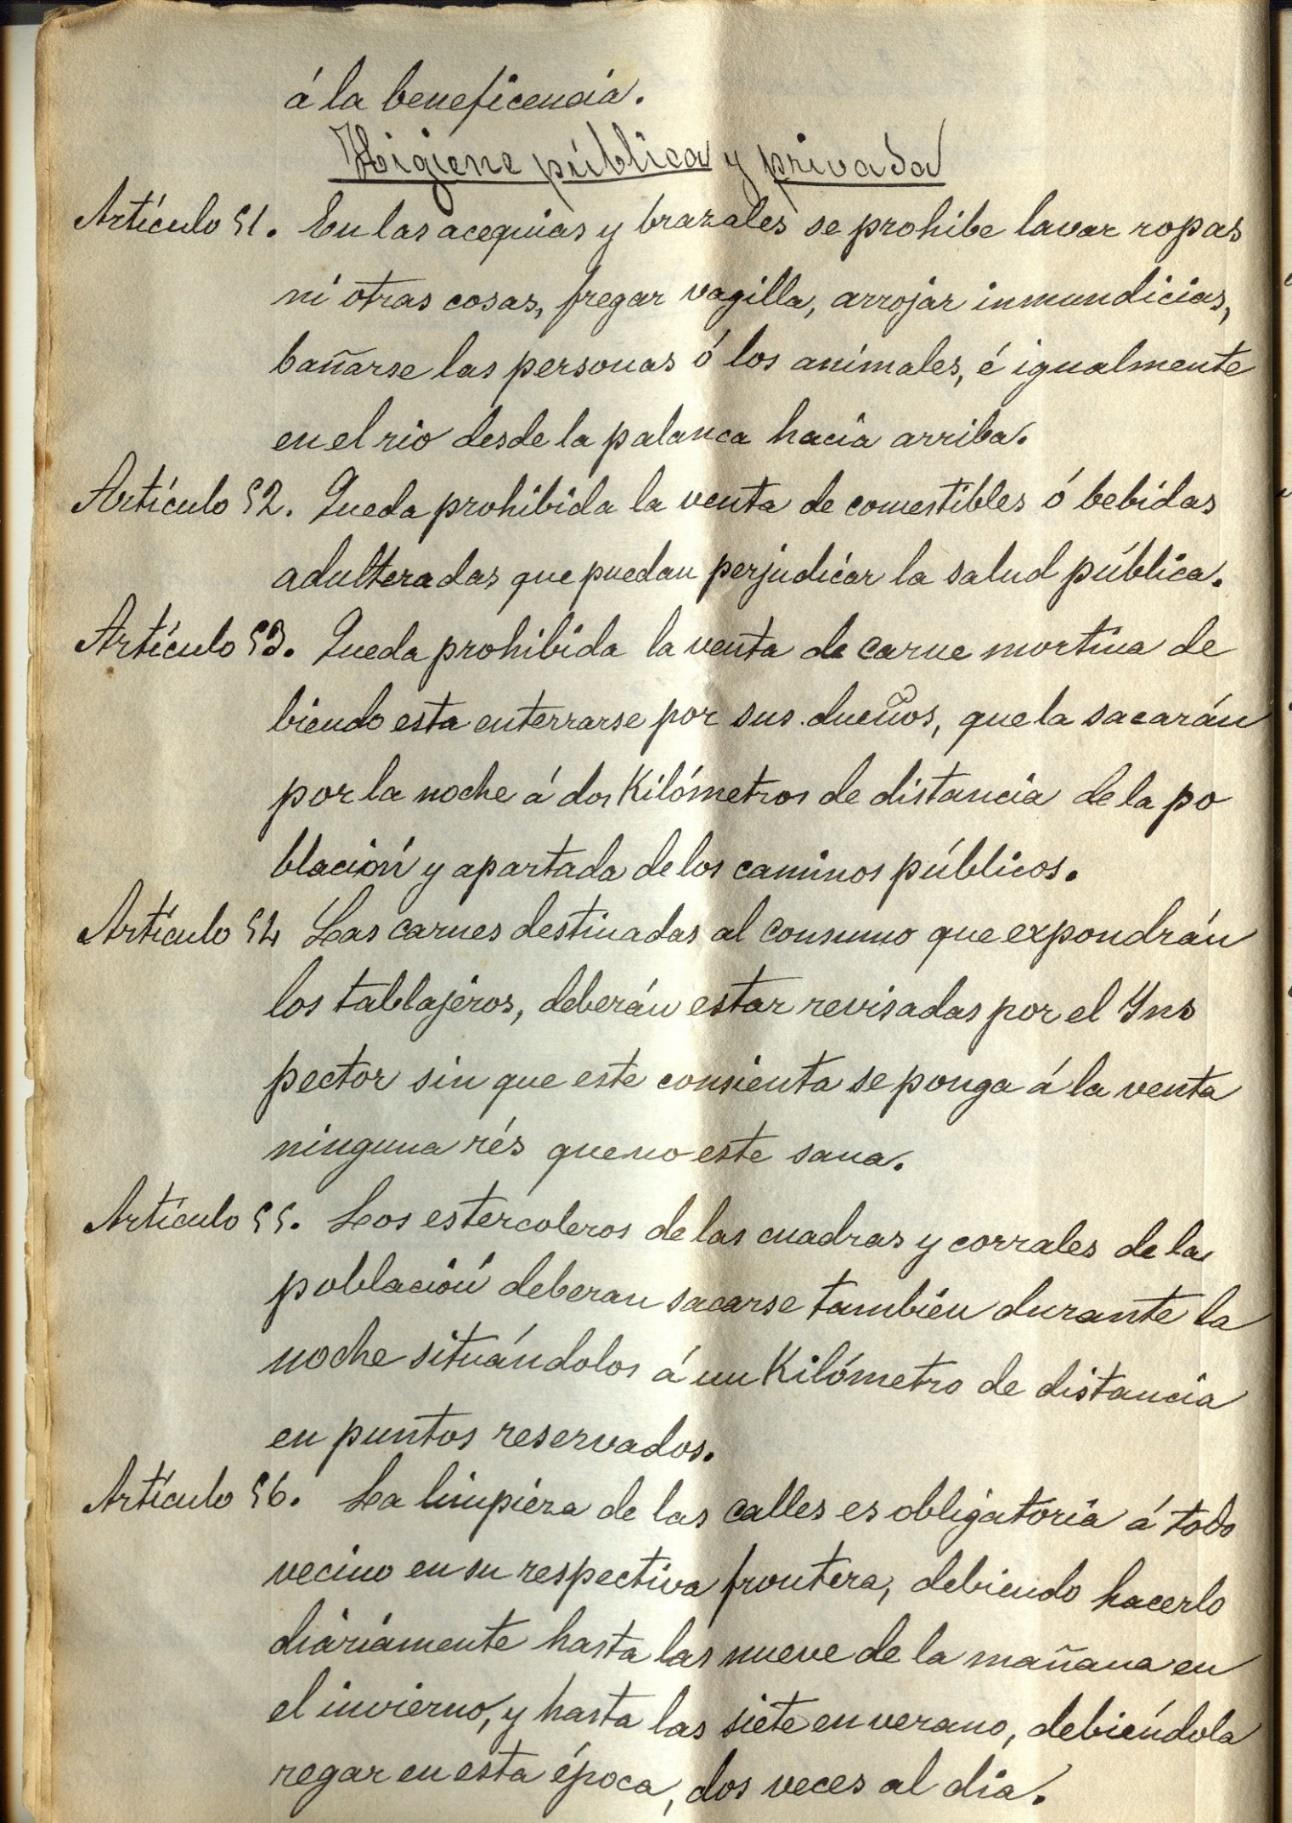 á la beneficencia.
Higiene pública y privada
Artículo 51. En las acequias y brazales se prohibe lavar ropas
ni otras cosas, fregar vagilla, arrojar inmundicias,
bañarse las personas ó los animales, é igualmente
en el rio desde la palanca hacia arriba.
Artículo 52. Queda prohibida la venta de comestibles ó bebidas
adulteradas que puedan perjudicar la salud pública.
Artículo 53. Queda prohibida la venta de carne mortina de
biendo esta enterrarse por sus dueños, que la sacarán
por la noche á dos Kilómetros de distancia de la po
blación y apartada de los caminos públicos.
Artículo 54 Las carnes destinadas al consumo que expondrán
los tablajeros, deberán estar revisadas por el Yns
pector sin que este consienta se ponga á la venta
ninguna rés que no este sana.
Artículo 55. Los estercoleros de las cuadras y corrales de la
población deberan sacarse también durante la
noche situándolos á un Kilómetro de distancia
en puntos reservados.
Artículo 56. La limpieza de las calles es obligatoria á todo
vecino en su respectiva frontera, debiendo hacerlo
diáriamente hasta las nueve de la mañana en
el invierno, y hasta las siete en verano, debiéndola
regar en esta época, dos veces al dia.